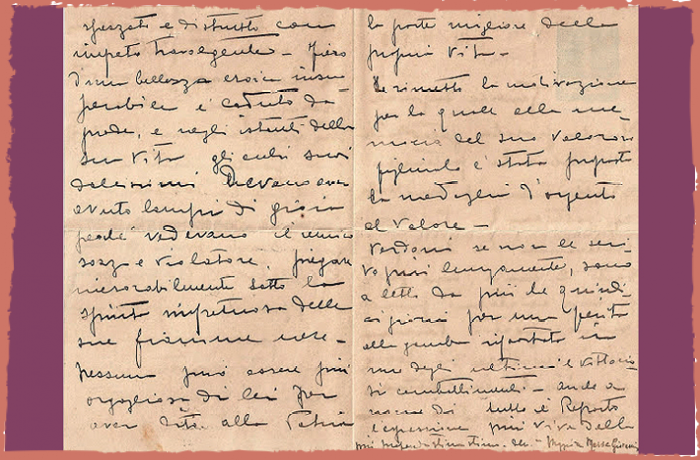 spezzati e distrutto con
impeto travolgente - Fiero
d'una bellezza eroica insu
perabile e' caduto da
prode, e negli istanti della
sua vita gli occhi suoi
dolcissimi devono aver
avuto lampi di gioia
perché vedevano il nemico
sozzo e violatore, piegare
inesorabilmente sotto la
spinta impetuosa delle
sue fiamme nere -
Nessuna può essere più
orgogliosa di lei per
aver dato alla Patria
la parte migliore della
propria vita -
Le rimetto la motivazione
per la quale alla me
moria del suo valoroso
figliuolo è stata proposta
la medaglia d'argento
al valore -
Perdoni se non le scri
vo più lungamente, sono
a letto da più di quindi
ci giorni per una ferita
alla gamba riportata in
uno degli ultimi e vittorio
si combattimenti - anche a
nome di tutto il Reparto
l'espressione più viva della
più